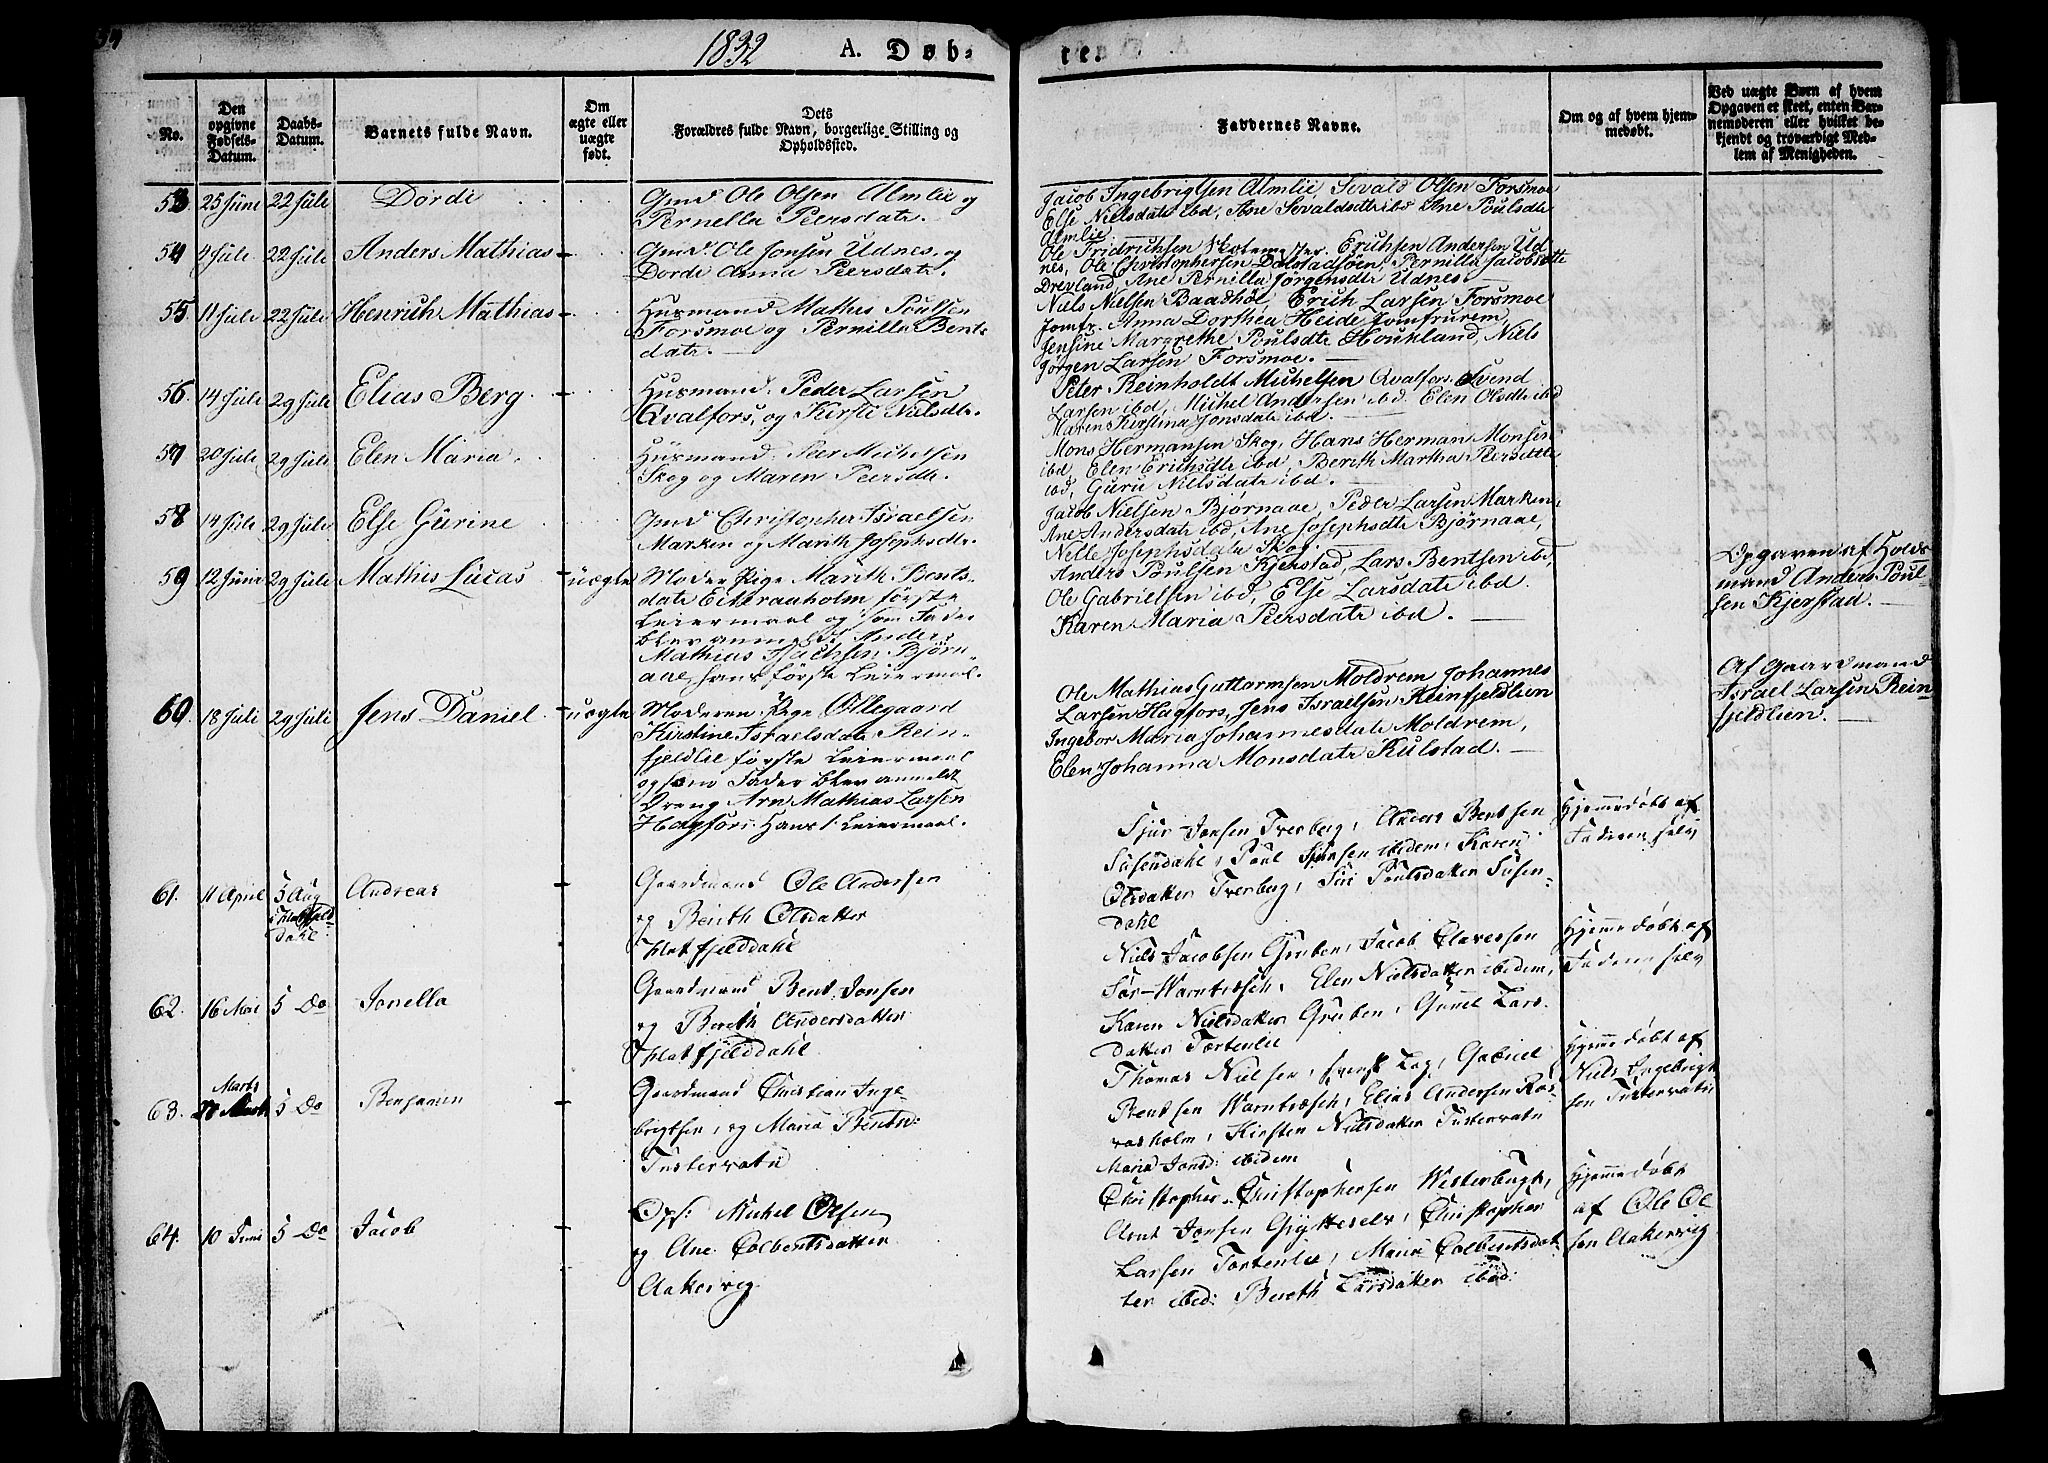 1832
A. Døb-
te.
No.
Den
opgivne
Fødsels-
Datum.
Daabs-
Datum.
Barnets fulde Navn.
Om
ægte eller
uægte
født.
Dets
Forældres fulde Navn, borgerlige Stilling og
Opholdssted.
Faddernes Navne.
Om og af hvem hjem-
medøbt.
Ved uægte Børn af hvem
Opgaven er skeet, enten Bar-
nemoderen eller hvilket be-
kjendt og troværdigt Med-
lem af Menigheden.
53 25 Juni 22 Juli Dordi
Gmd Ole Olsen Almlie og
Pernella Peersdatr.
Jacob Ingebrigtsen Almlie, Sevald Olsen Forsmoe
Else Nielsdatr ibd, Ane Sevaldsdtr ibd Ane Poulsdtr
Almlie
54 4 Juli 22 Juli Anders Mathias
Gmd. Ole Jonsen Udnes, og
Dorde Anna Peersdatr.
Ole Fridrichsen Erichsen Andersen Ud
nes, Ole Christophersen Dolstadsøen, Pernilla Jacobsdtr
Drevland, Ane Pernilla Jørgensdtr Udnes.
55 11 Juli 22 Juli Henrich Mathias
Husmand Mathis Poulsen
Forsmoe og Pernilla Bents
datr.
Niels Nielsen Baadhøl, Erich Larsen Forsmoe
Jomfr. Anna Dorthea Heide Jomfruerem,
Jensine Margrethe Poulsdtr Houkland, Niels
Jørgen Larsen Forsmoe.
56. 14 Juli 29 Juli Elias Berg
Husmand Peder Larsen
Qvalfors, og Kirsti Nielsdtr.
Peter Reinholdt Michelsen Qvalfors. Svend
Larsen ibd, Michel Andersen ibd, Elen Olsdtr ibd
Maren Kirstina Jonsdatr ibd.
57 20 Juli 29 Juli Elen Maria
Husmand Peer Michelsen
Skog og Maren Peersdtr.
Mons Hermansen Skog, Hans Herman Monsen
ibd, Elen Erichsdtr ibd, Berith Martha Peersdatr
ibd, Guru Nielsdatr ibd.
58 14 Juli 29 Juli Else Gurine
Gmd Christopher Israelsen
Marken og Marith Josephsdtr.
Jacob Nielsen Bjørnaae, Peder Larsen Marken,
Ane Andersdatr ibd, Ane Josephsdtr Bjørnaae,
Nille Josephsdatr Skog.
59 12 Juni 29 Juli Mathis Lucas uægte
Moder Pige Marith Bents-
datr Eiteraaholm første
Leiermaal og som Fader
blev anmeldt Anders
Mathias Isachsen, Bjørn
aae, hans første Leiermal.
Anders Poulsen Kjerstad, Lars Bentsen ibd,
Ole Gabrielsen ibd, Else Larsdatr ibd
Karen Maria Peersdatr ibd.
Opgaven af Holds
mand Anders Poul-
sen Kjerstad.
60. 18 Juli 29 Juli Jens Daniel uægte
Moderen Pige Øllegaard
Kirstine Israelsdatr Rein-
fjeldlie første Leiermaal
og som Fader blev anmeldt
Dreng Arn Mathias Larsen
Hagfors. Hans 1. Leiermaal.
Ole Mathias Guttormsen Moldrem Johannes
Larsen Hagfors, Jens Israelsen Reinfjeldlien
Ingebor Maria Johannesdatr Moldrem,
Elen Johanna Monsdatr Kulstad.
Af Gaardmand
Israel Larsen Rein
fjeldlien.
61. 11 April 5 Aug Andreas
Gaardmand Ole Andersen
og Berith Olsdatter
Hatfjelddahl
Sjur Jonsen Tverberg, Anders Bentsen
Susendahl, Poul Sjursen ibidem, Karen
Olsdatter Tverberg, Siri Poulsdatter Susen-
dahl
Hjemmedøbt af
Faderen selv
62. 16 Mai 5 Do Jonella
Gaardmand Bent Jonsen
og Bereth Andersdatter
Hatfjelddahl
Niels Jacobsen Gruben, Jacob Clavesen
Sør-Warntræsch, Elen Nielsdatter ibidem,
Karen Nielsdatter Gruben, Gunel Lars
datter Tortenlie
Hjemmedøbt af
Faderen selv
63. Marts 5 Do Benjamin
Gaardmand Christian Inge
brigtsen, og Maria Bentsd:
Tustervatn
Thomas Nielsen, svensk Lap, Gabriel
Bentsen Warntræsch, Elias Andersen Røs-
vasholm, Kirsten Nielsdatter Tustervatn
Maria Jonsd: ibidem
Hjemmedøbt af
Niels Ingebrigt
sen Tustervatn
64. 10 Juni 5 Do Jacob
Ops: Michel Olsen
og Ane Colbentsdatter
Aakervig
Christopher Christophersen Westerbugt,
Arnt Jonsen Gryteselv, Christopher
Larsen Tortenlie, Maria Colbentsdat
ter ibid: Bereth Larsdatter ibid:
Hjemmedøbt
af Ole Ol
sen Aakervig